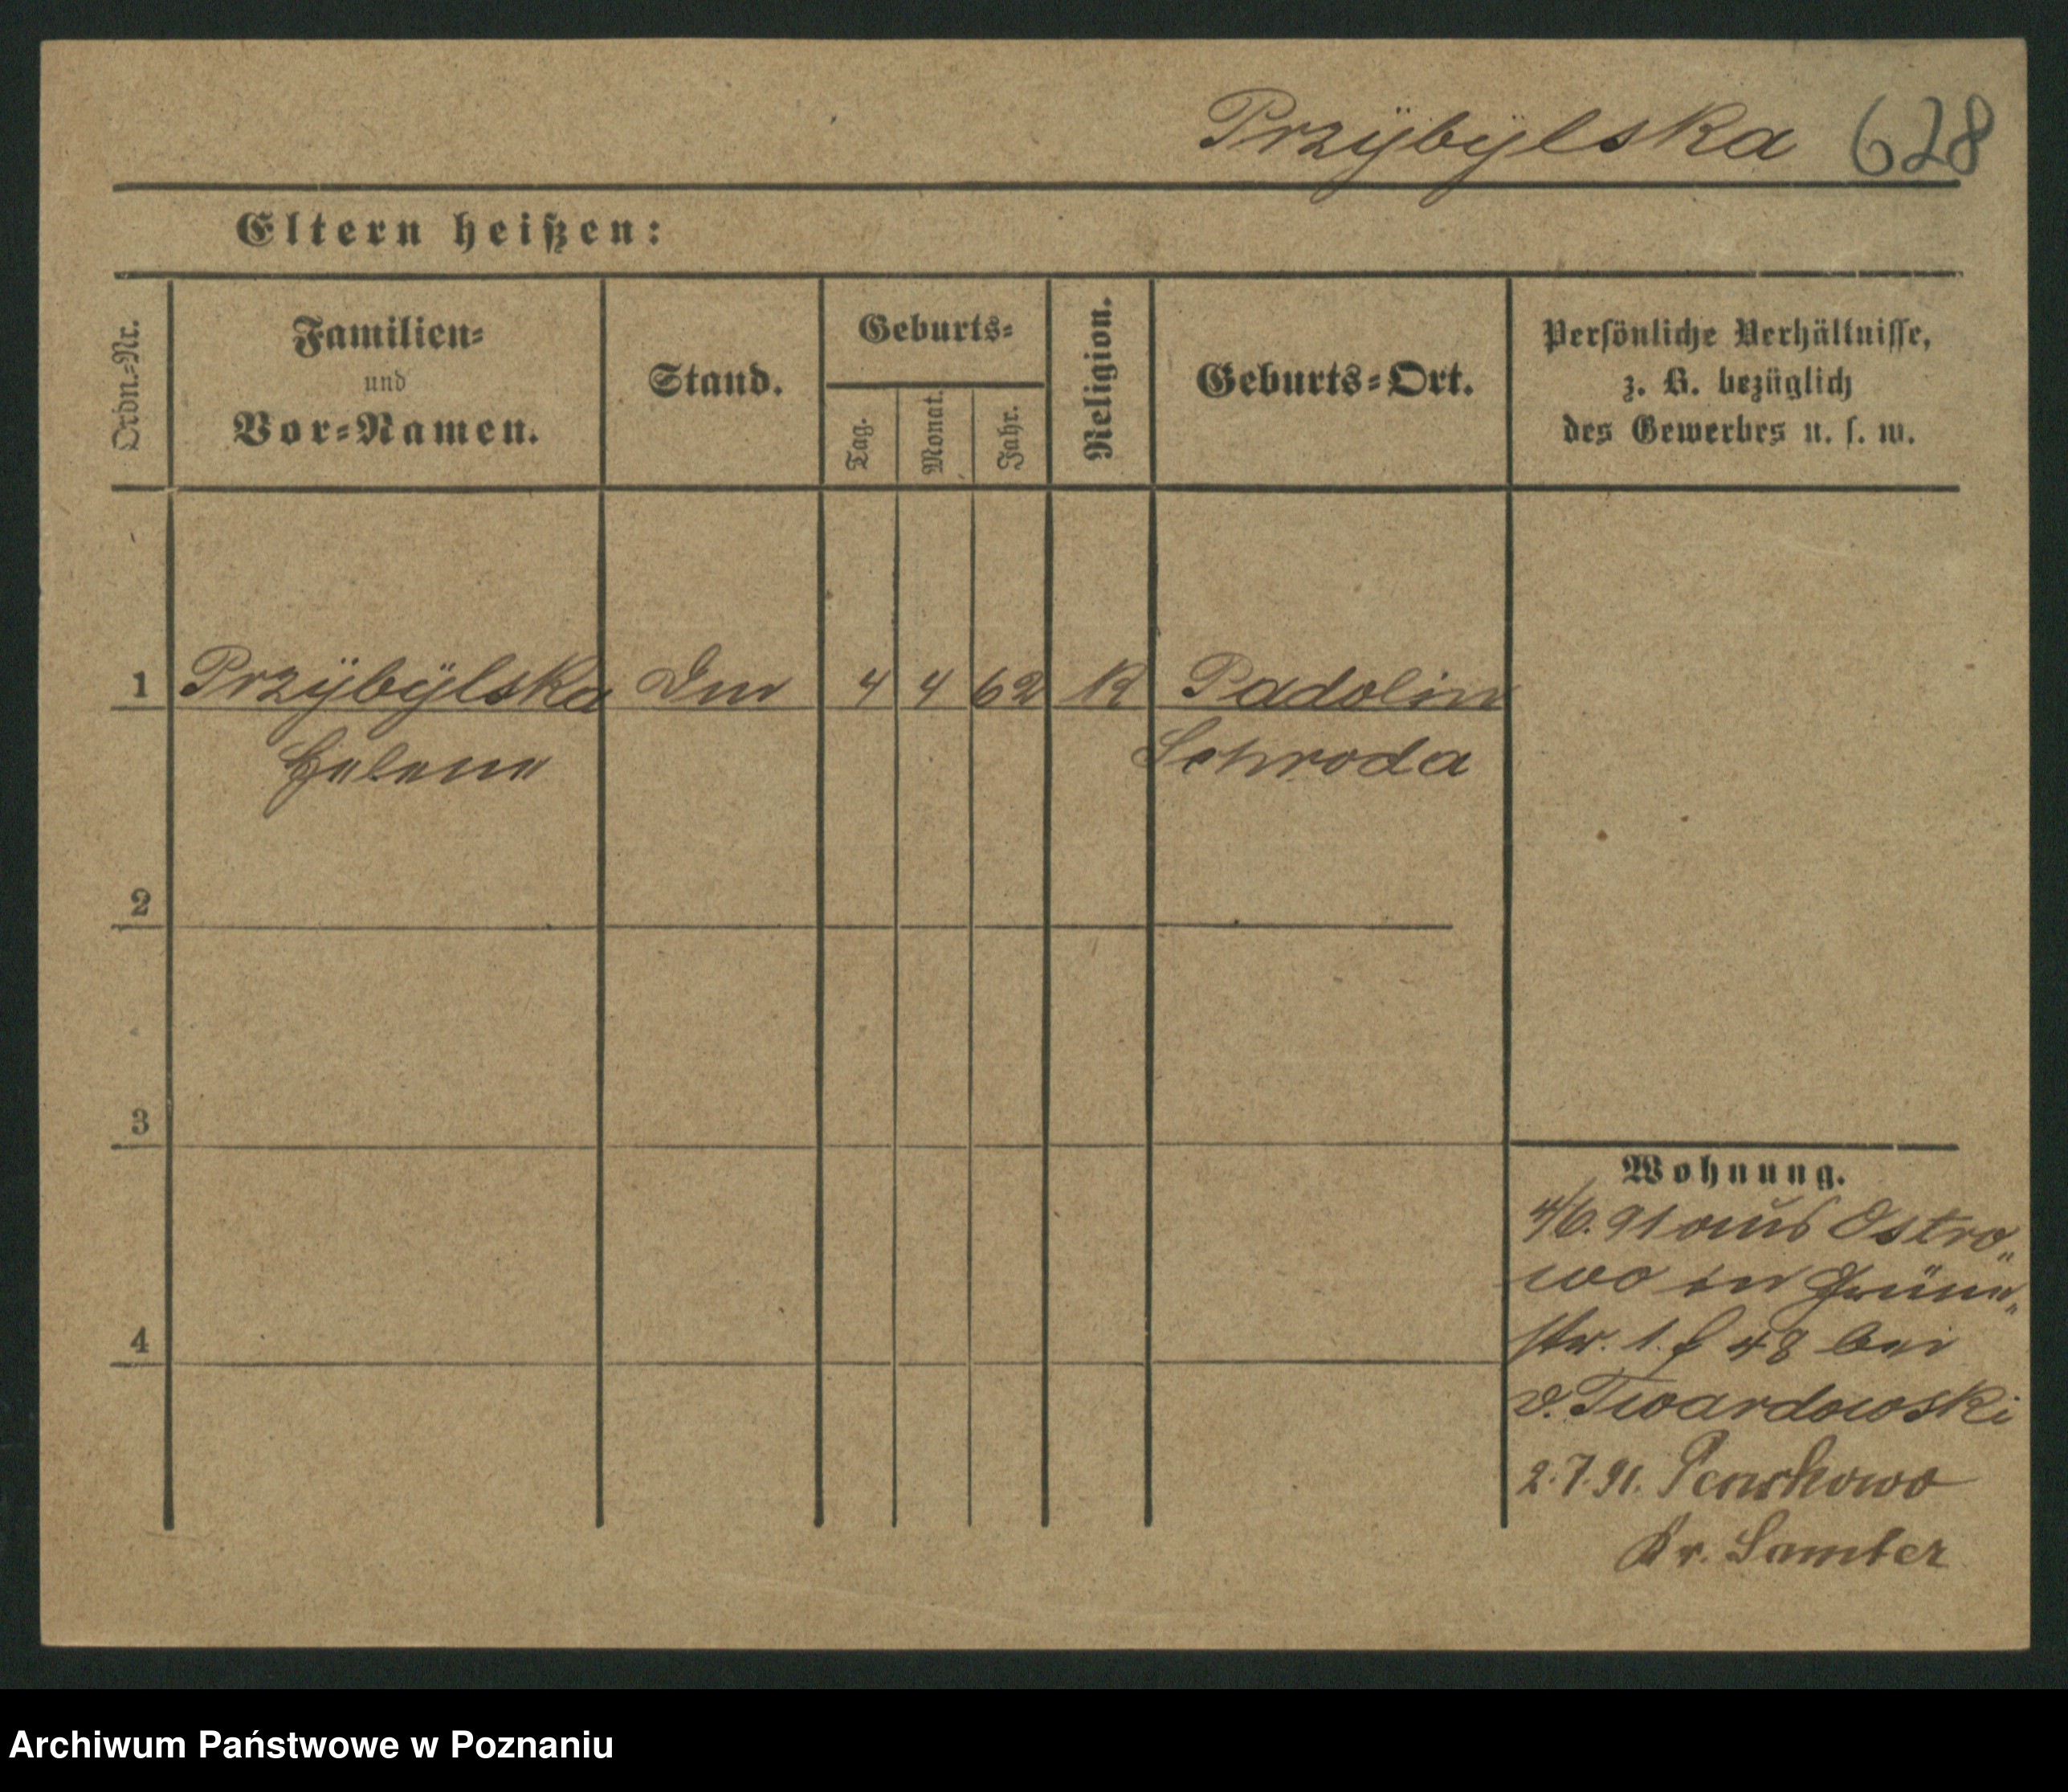 Przÿbÿlska 628
Eltern heißen:
Ordn.-Nr.
Familien-
und
Vor-Namen.
Stand.
Geburts-
Tag.
Monat.
Jahr.
Religion.
Geburts-Ort.
Persönliche Verhältnisse,
z. B. bezüglich
des Gewerbes u. s. w.
1 Przÿbÿlska 4 4 62 K Padolin
Helene Schroda
2
3
4
Wohnung.
4/6. 91 aus Ostro„
wo in Grüne„
str. 1. 48 bei
v. Twardowski
2.7.91.
Kr. Samter
Archiwum Państwowe w Poznaniu